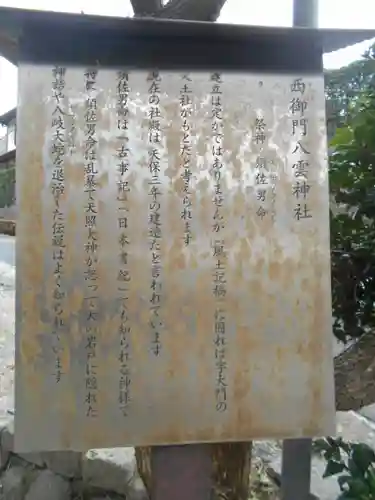 西御門八雲神社
祭神 須佐男命
建立は定かではありませんが「風土記稿」に因れば字大門の
天王社がもとだと考えられます
現在の社殿は天保三年の建造だと言われています
須佐男命は「古事記」「日本書紀」でも知られる神様で
特に須佐男命は乱暴で天照大神が怒って天の岩戸に隠れた
神話や八岐大蛇を退治した伝説はよく知られています